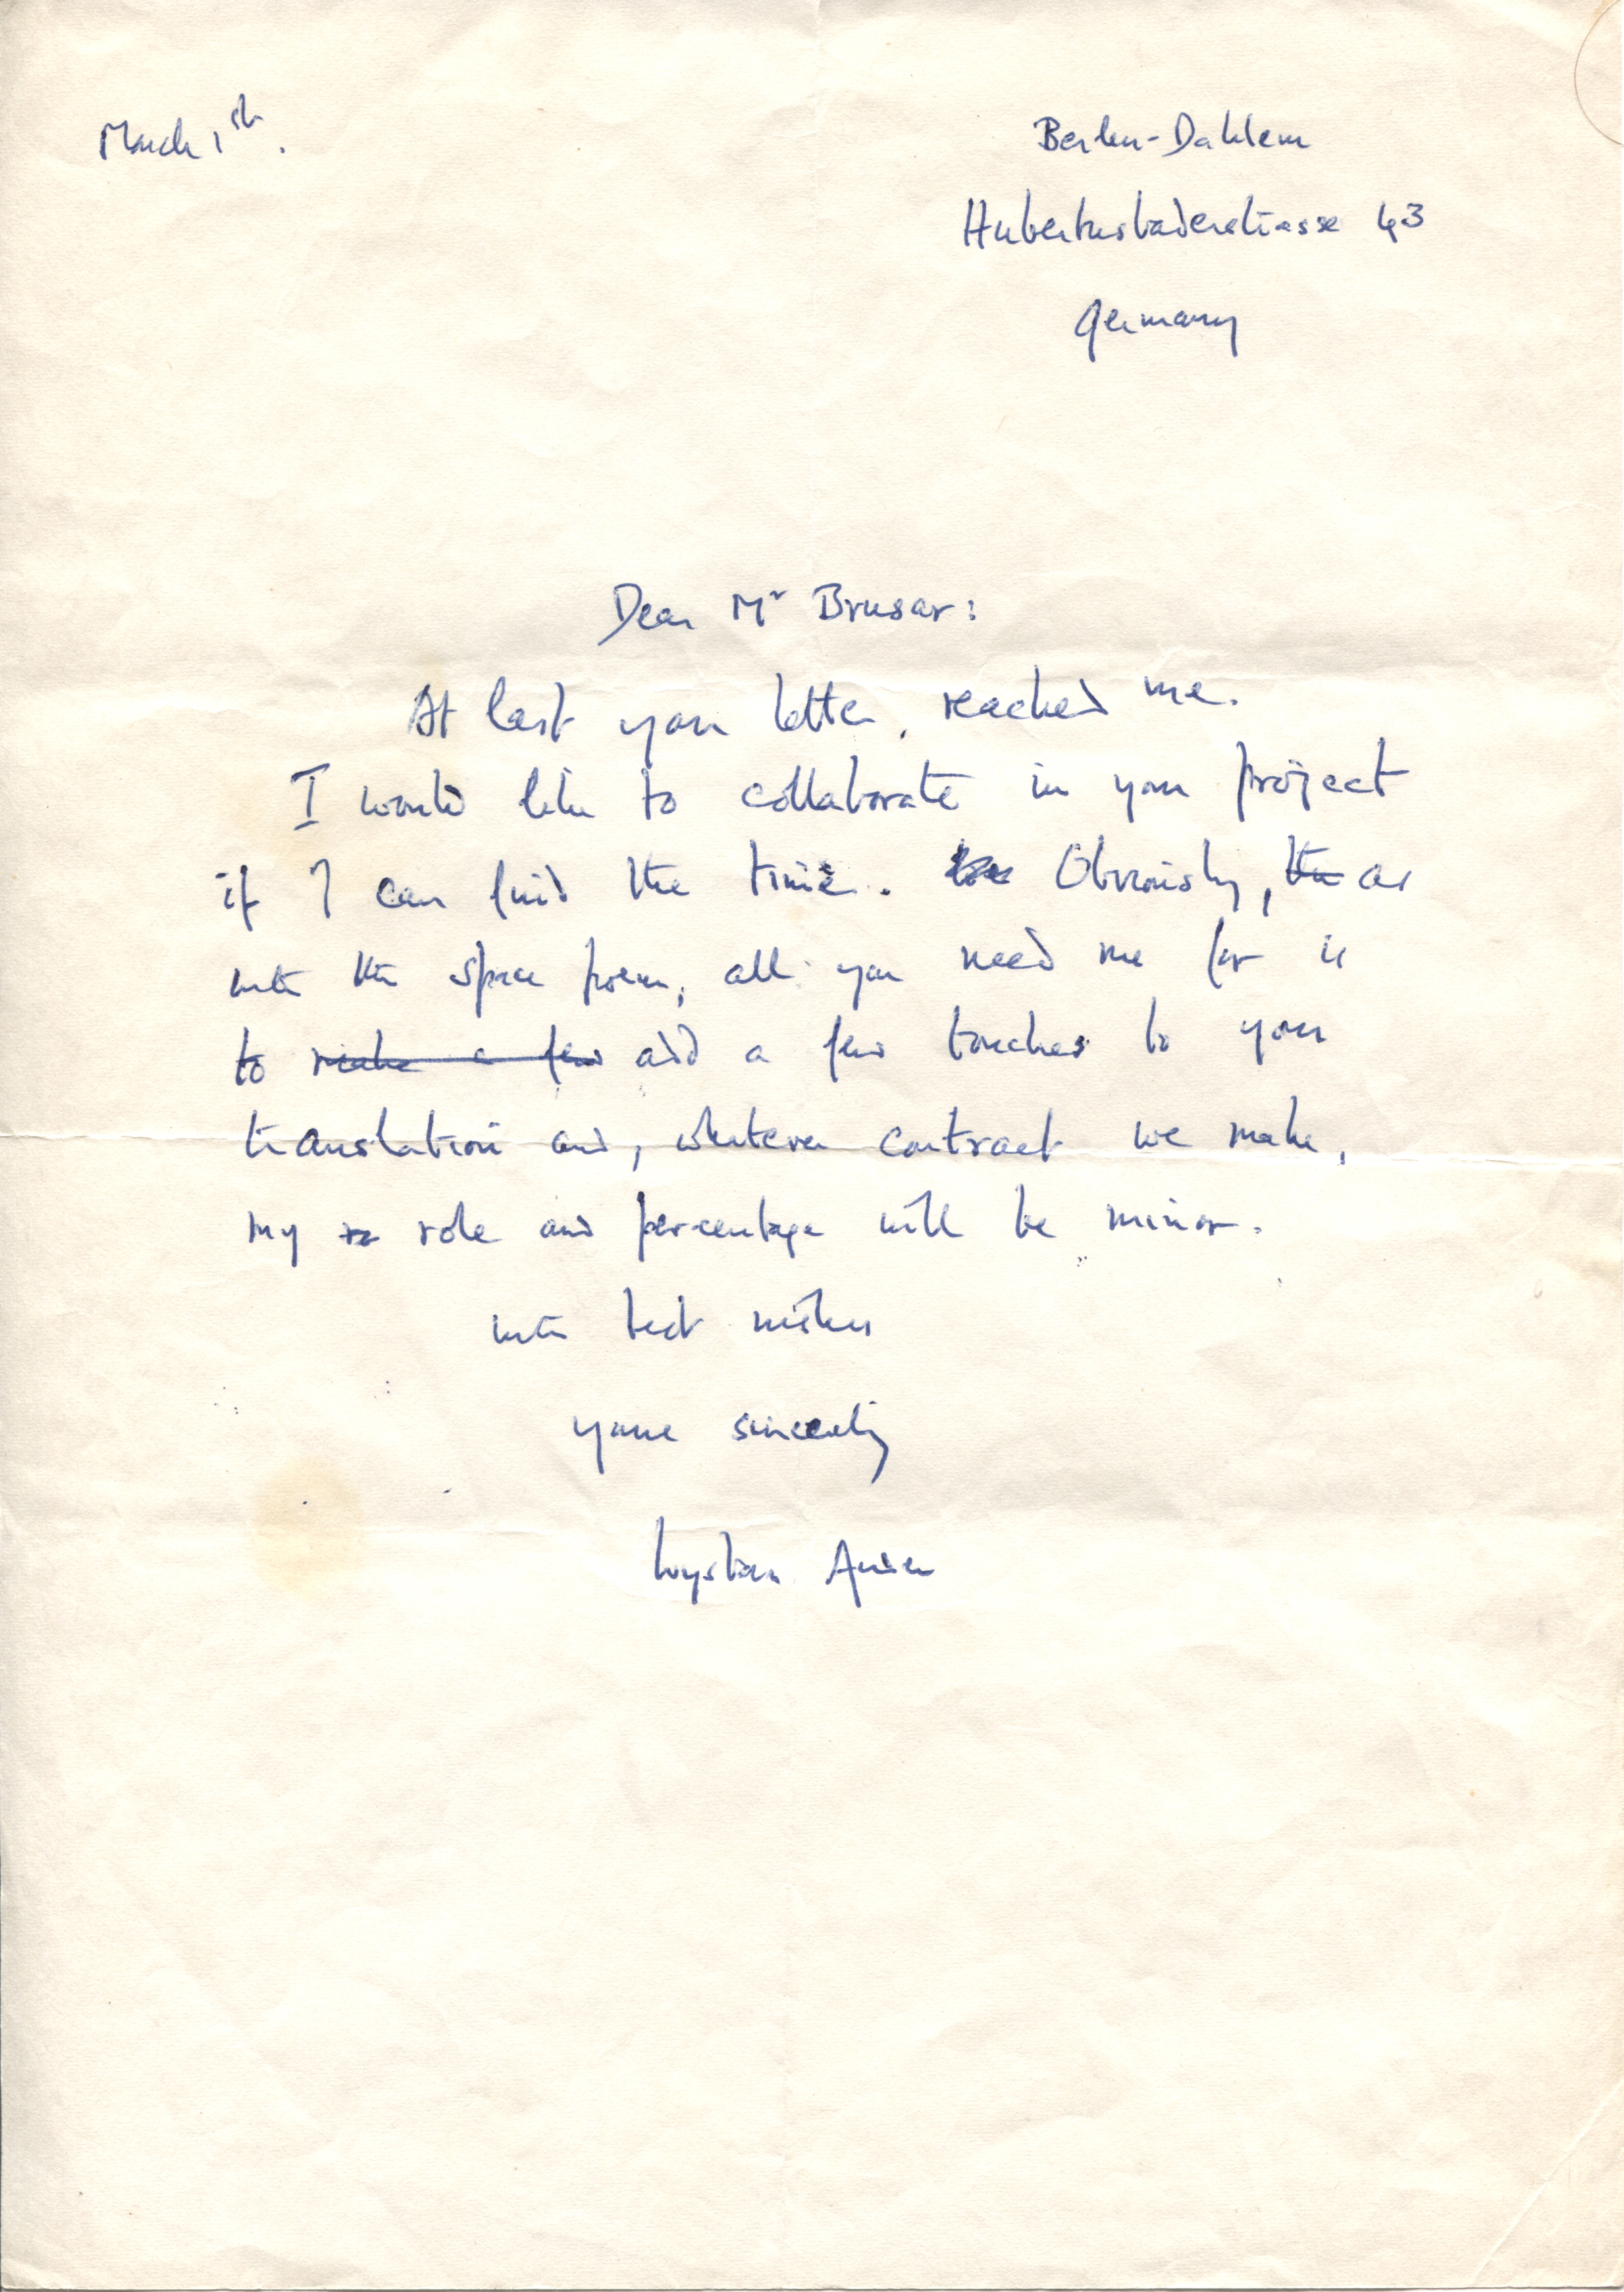 March 1st.
Berlin-Dahlem
Hubertusbaderstrasse 43
Germany
Dear Mr Brusar:
At last your letter, reached me.
I would like to collaborate in your project
if I can find the time. Obviously, as
with the space poem, all you need me for is
to make a few add a few touches to your
translation and, whatever contract we make,
my ro role and percentage will be minor.
with best wishes
yours sincerely
Wystan Auden